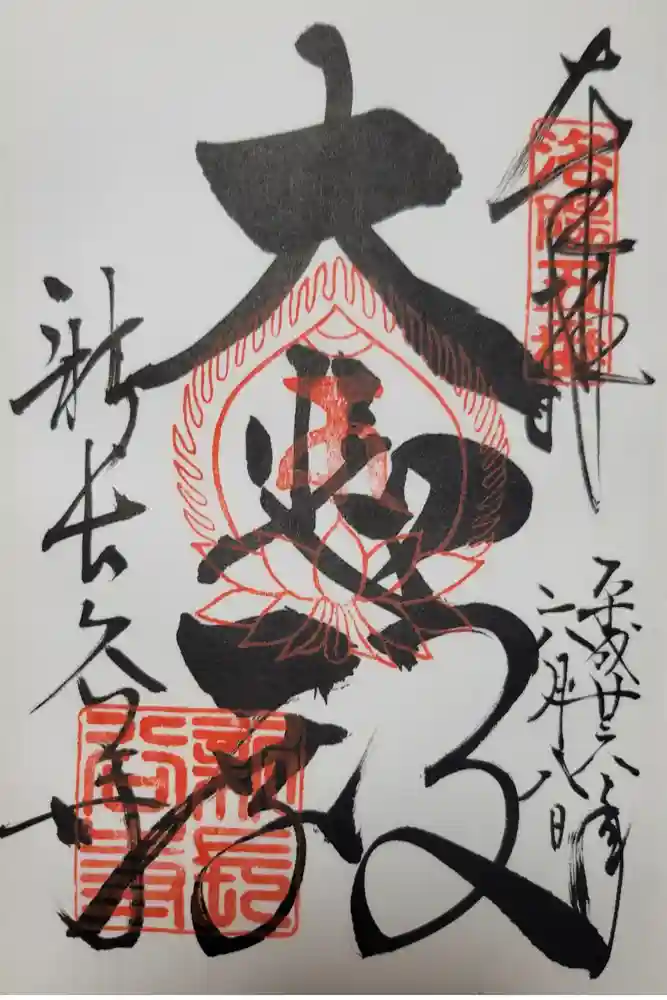 奉拝
洛陽五番
平成廿六年
六月八日
大悲殿
新長谷寺
新長
谷寺